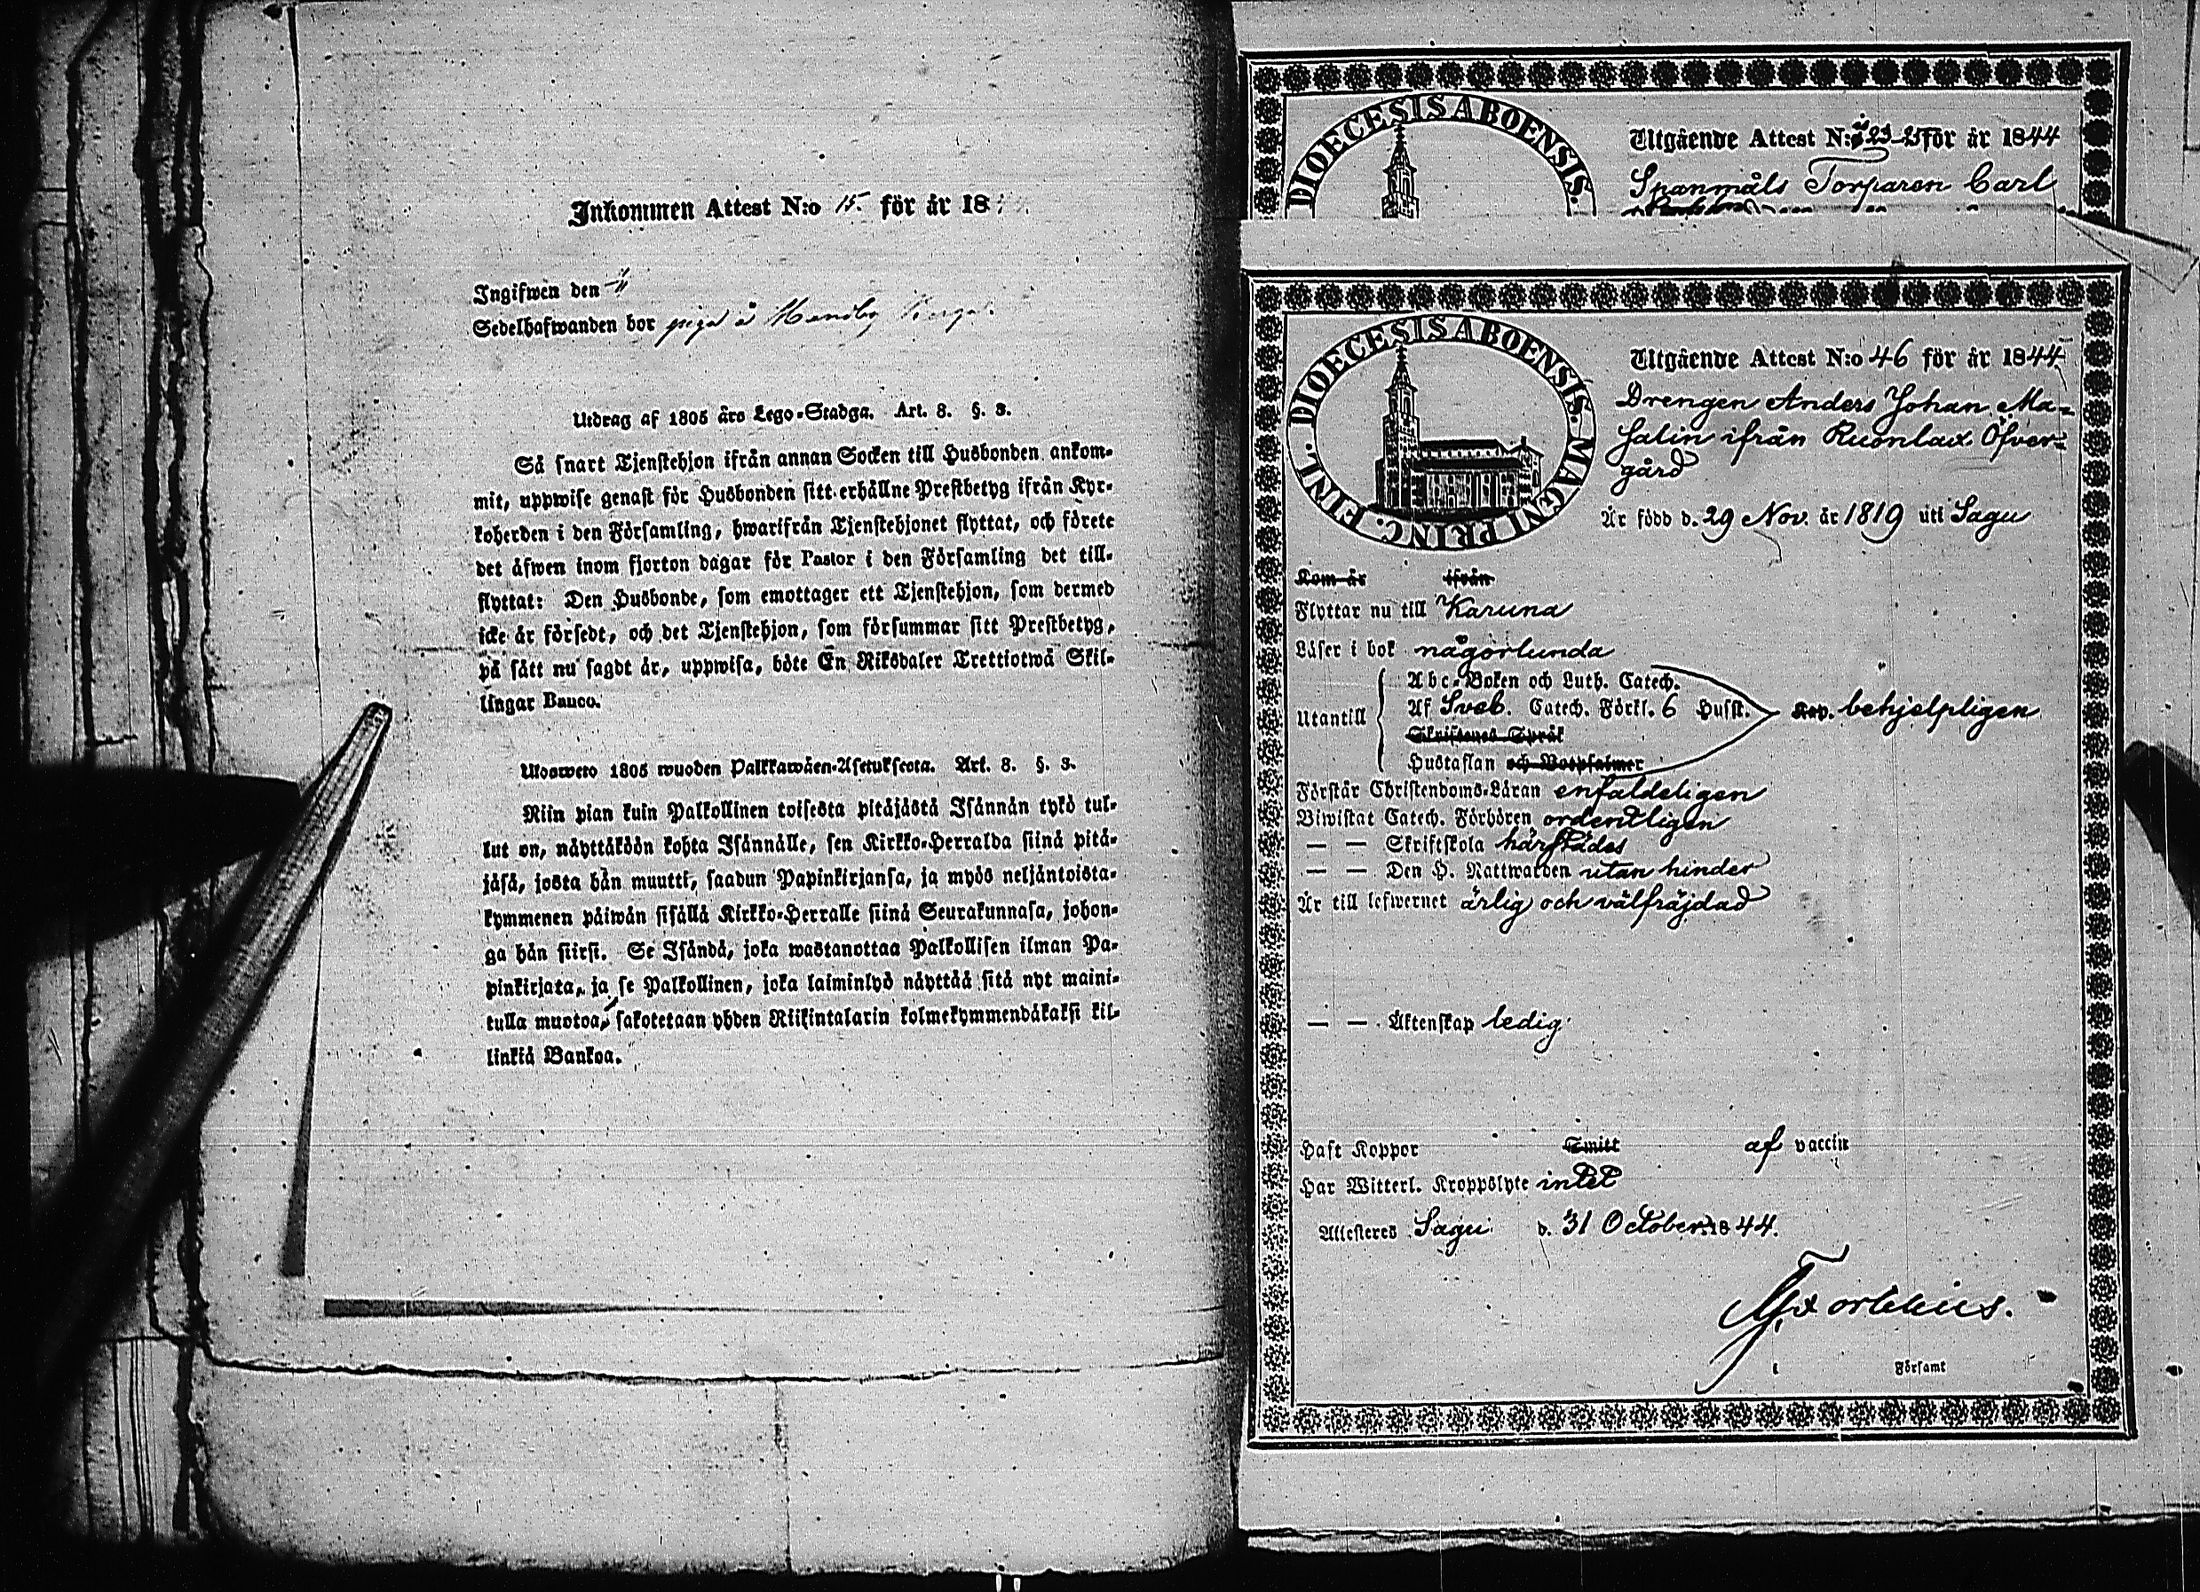 Inkommen Attest N:o 15 för år 18
Ingifwen den
Sedelhafwanden bor piga å Mandby
Utdrag af 1805 års Lego-Stadga. Art. 8. §. 3.
Så snart Tjenstehjon ifrån annan Socken till Husbonden ankom-
mit, uppwise genast för Husbonden sitt erhållne Prestbetyg ifrån Kyr-
koherden i den Församling, hwarifrån Tjenstehjonet flyttat, och förete
det åfwen inom fjorton dagar för Pastor i den Församling det till-
flyttat: Den Husbonde, som emottager ett Tjenstehjon, som dermed
icke är försedt, och det Tjenstehjon, som försummar sitt Prestbetyg,
på sått nu sagdt är, uppwisa, böte En Riksdaler Trettiotwå Skil-
lingar Banco.
Uloswето 1805 wuoden Palkkawåen-Asetuksesta. Art. 8. §. 3.
Niin pian kuin Palkollinen toisesta pitåjåstå Isånnån tykö tul-
lut on, nåyttåköön kohta Isånnålle, sen Kirkko-Herralda siinå pitå-
jåså, josta hån muutti, saadun Papinkirjansa, ja myös neljåntoista-
kymmenen påiwån sisållå Kirkko-Herralle siinå Seurakunnasa, johon-
ga hån siirsi. Se Isåndå, joka wastanottaa Palkollisen ilman Pa-
pinkirjata, ja se Palkollinen, joka laiminlyö nåyttåå sitå nyt maini-
tulla muotoa, sakotetaan yhden Riikintalarin kolmekymmendåkaksi kil-
linkiå Bankoa.
DIOECESIS ABOENSIS.
Utgående Attest N:o 23-25 för år 1844
Spanmåls Torparen Carl
DIOECESIS ABOENSIS. MAGNI PRINC. FINL.
Utgående Attest N:o 46 för år 1844.
Drengen Anders Johan Ma-
salin ifrån Ruonlax Öfver-
gård
Är född d. 29 Nov. år 1819 uti Sagu
Kom år ifrån
Flyttar nu till Karuna
Läser i bok någorlunda
Abc-Boken och Luth. Catech.
Utantill Af Sveb. Catech. Förkl. 6 Hufst. behjelpligen
Skriftenes Språk
Hustaflan och Botpsalmer
Förstår Christendoms-Läran enfaldeligen
Biwistat Catech. Förhören ordentligen
— — Skriftskola härstädes
— — Den H. Nattwarden utan hinder
Är till lefwernet ärlig och välfräjdad
— — Äktenskap ledig
Haft Koppor Smitt af vaccin
Har Witterl. Kroppslyte intet
Attesteres Sagu d. 31 October 1844.
i Församl